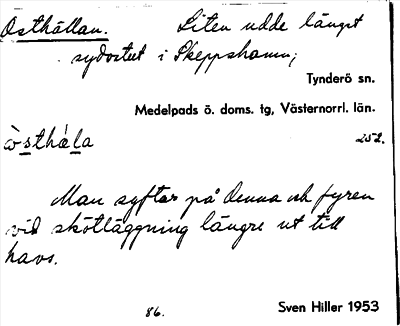 Östhällan. Liten udde längst
sydostut i Skeppshamn;
Tynderö sn.
Medelpads ö. doms. tg, Västernorrl. län.
òsthála 252.
Man syftar på denna och fyren
vid skötläggning längre ut till
havs.
86. Sven Hiller 1953